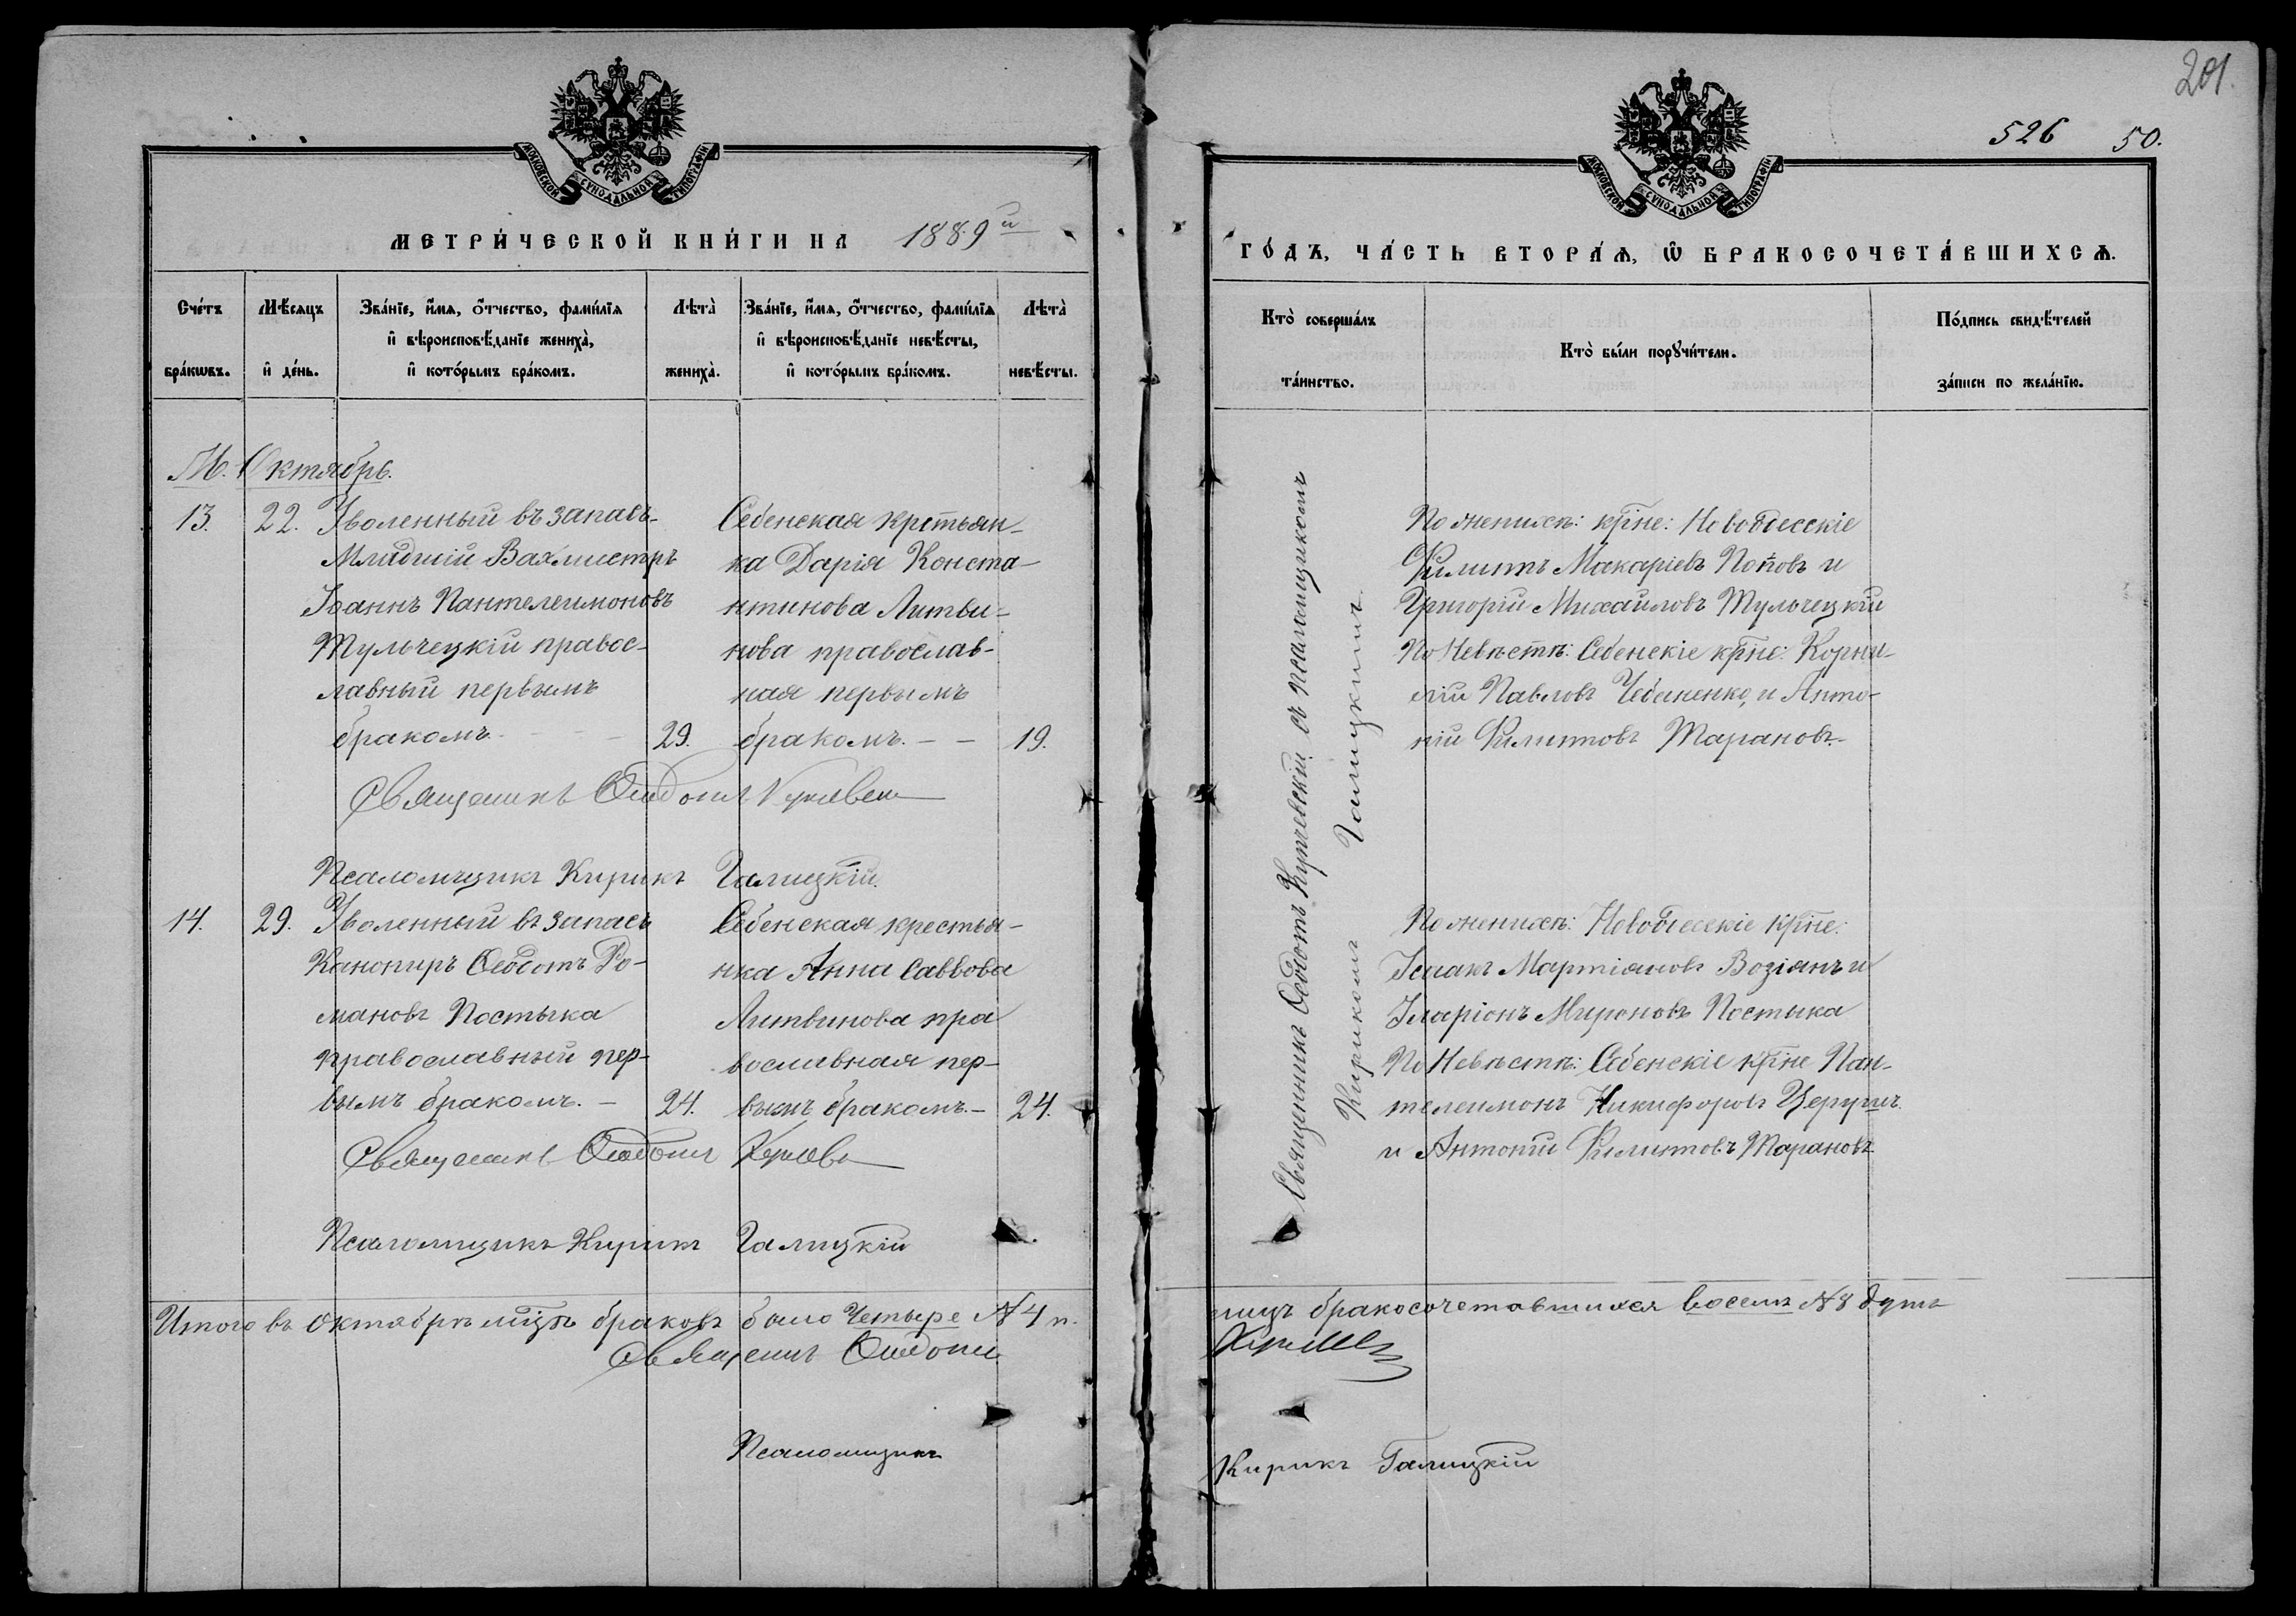 201.
526 50.
МОСКОВСКОЙ СѴНОДАЛЬНОЙ ТИПОГРАФІИ
МОСКОВСКОЙ СѴНОДАЛЬНОЙ ТИПОГРАФІИ
МЕТРИ́ЧЕСКОЙ КНИ́ГИ НА 1889й
ГО́ДЪ, ЧА́СТЬ ВТОРА́Ѧ, Ѡ БРАКОСОЧЕТА́ВШИХСѦ.
Сче́тъ бра́кѡвъ.
Мѣ́сѧцъ и҆ де́нь.
Зва́нїе, и҆́мѧ, ѻ҆́тчество, фами́лїѧ
и҆ вѣроисповѣ́данїе жениха̀,
и҆ кото́рымъ бра́комъ.
Лѣта̀ жениха̀.
Зва́нїе, и҆́мѧ, ѻ҆́тчество, фами́лїѧ
и҆ вѣроисповѣ́данїе невѣ́сты,
и҆ кото́рымъ бра́комъ.
Лѣта̀ невѣ́сты.
Кто̀ соверша́лъ
та́инство.
Кто̀ бы́ли порꙋчи́тели.
По́дпись свидѣ́телей
за́писи по жела́нїю.
М. Октябрь.
13. 22. Уволенный въ запасъ
Младшій Вахмистръ
Іоаннъ Пантелеимоновъ
Тульчецкій правос-
лавный первымъ
бракомъ. 29.
Себенская крстьян-
ка Дарія Конста-
нтинова Литви-
нова православ-
ная первымъ
бракомъ. — — 19.
Священникъ Ѳеодотъ
Псаломщикъ Кирикъ Галицкій.
По женихѣ: крне: Новоодесскіе
Филиппъ Макаріевъ Поповъ и
Григорій Михаиловъ Тульчецкій
По Невѣстѣ: Себенскіе крне: Корни-
лій Павловъ Чебаненко, и Анто-
ній Филипповъ Тарановъ.
Священникъ Ѳеодотъ Кунчевскій съ псаломщикомъ
Кирикомъ Галицкимъ.
14. 29. Уволенный въ запасъ
Канониръ Ѳеодотъ Ро-
мановъ Постыка
православный пер-
вымъ бракомъ. — 24.
Себенская крестья-
нка Анна Саввова
Литвинова пра
вославная пер-
вымъ бракомъ. — 24.
Священникъ Ѳеодотъ
Псаломщикъ Кирикъ Галицкій
По женихѣ: Новоодесскіе крне:
Исаакъ Мартіановъ Возіянъ и
Иларіонъ Мироновъ Постыка
По Невѣстѣ: Себенскіе крне Пан-
телеимонъ Никифоровъ
и Антоній Филипповъ Тарановъ
Итого въ октябрѣ мцѣ браковъ было Четыре № 4 п.
лицъ бракосочетавшихся восемь № 8 душъ
Священикъ Ѳеодотъ
Псаломщикъ Кирикъ Галицкій